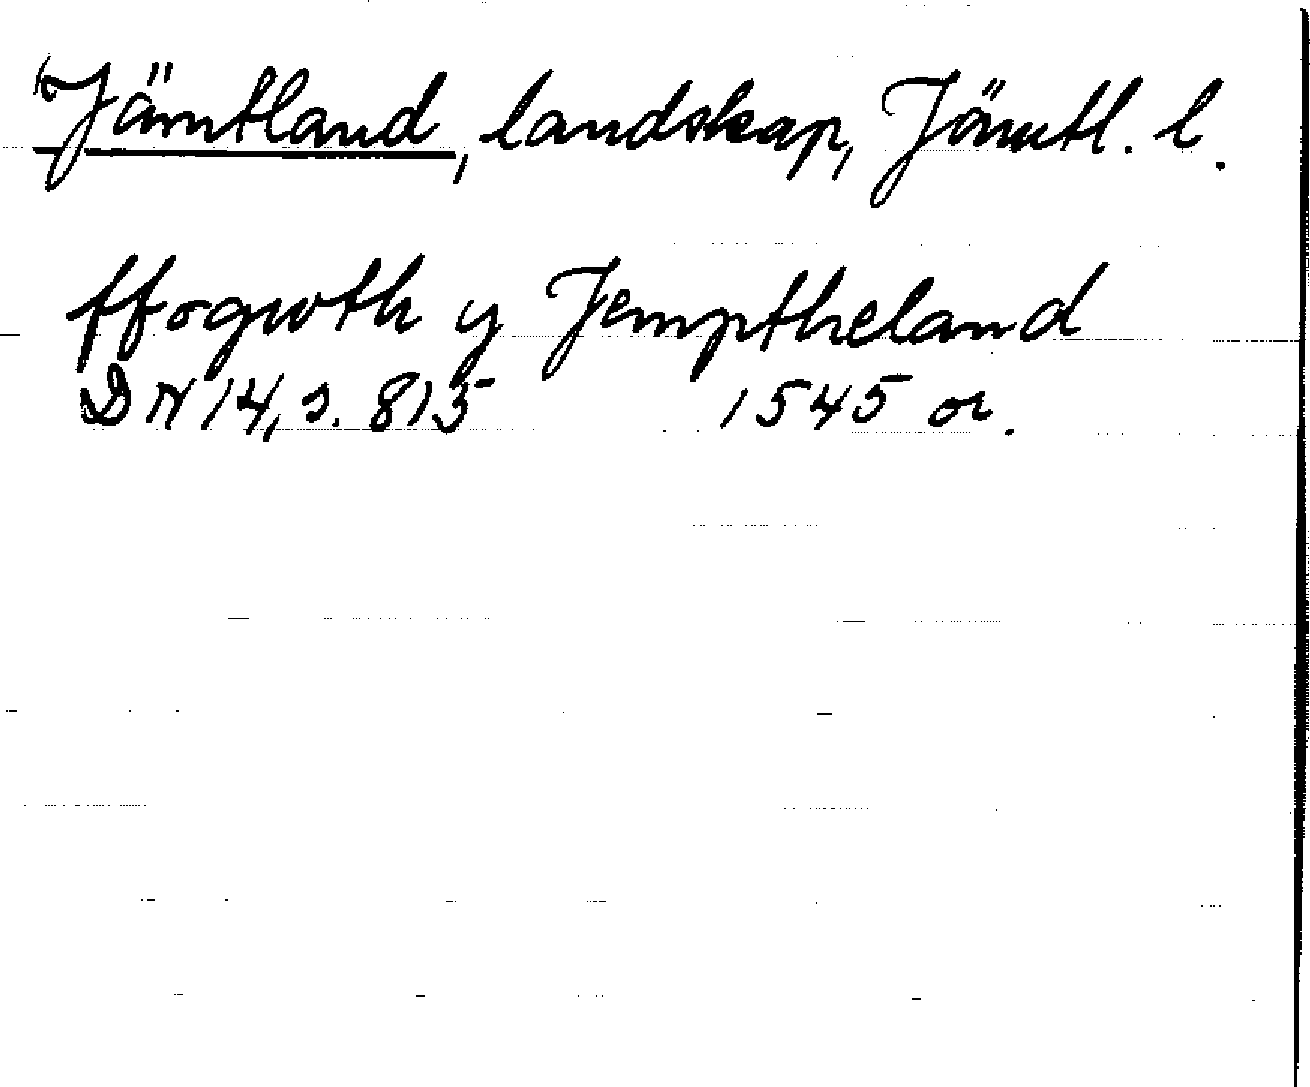 Jämtland, landskap, Jämtl. l.
ffogwth y Jemptheland
DN 14, s. 815 1545 or.